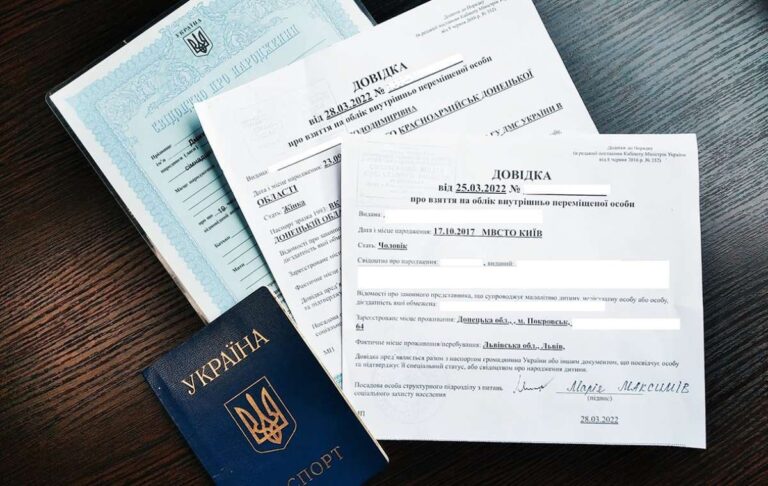 УКРАЇНА
СВІДОЦТВО ПРО НАРОДЖЕННЯ
Прізвище
ДОВІДКА
від 28.03.2022 №
про взяття на облік внутрішньо переміщеної особи
ОЛОДИМИРІВНА
Видана:
23.09
О КРАСНОАРМІЙСЬК ДОНЕЦЬКОЇ
Дата і місце народження:
ОБЛАСТІ
Стать: Жінка
ГУ ДМС УКРАЇНИ В
ДОНЕЦЬКІЙ ОБЛ
МП
Додаток до Порядку
(в редакції постанови Кабінету Міністрів України
від 8 червня 2016 р. № 352)
ДОВІДКА
від 25.03.2022 №
про взяття на облік внутрішньо переміщеної особи
Видана:
Дата і місце народження: 17.10.2017 МВСТО КИЇВ
Стать: Чоловік
Свідоцтво про народження: , виданий:
Відомості про законного представника, що супроводжує малолітню дитину, або особу,
дієздатність якої обмежена:
Зареєстроване місце проживання: Донецька обл., , м. Покровськ,
64
Фактичне місце проживання/перебування: Львівська обл., Львів,
Довідка пред'являється разом з паспортом громадянина України або іншим документом, що посвідчує особу
та підтверджує її спеціальний статус, або свідоцтвом про народження дитини.
Посадова особа структурного підрозділу з питань
соціального захисту населення
Марія МАКСИМІВ
(підпис)
МП
28.03.2022
УКРАЇНА
СПОРТ